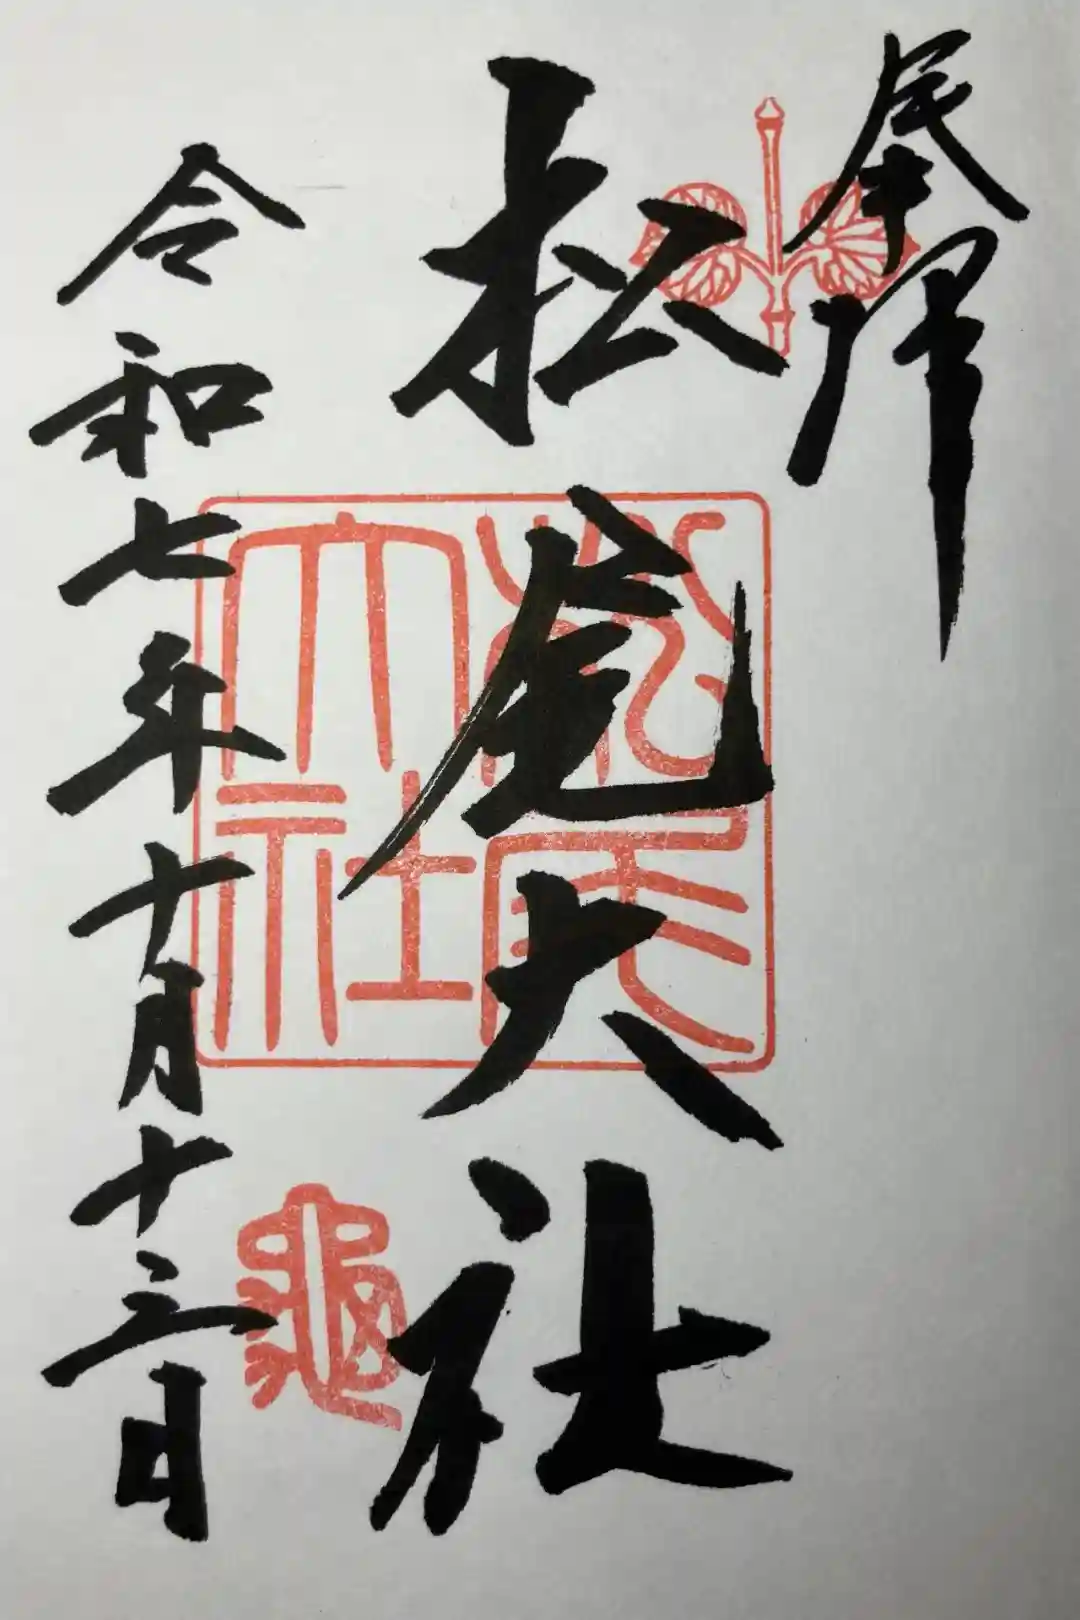 奉拝
松尾大社
松尾大社
令和七年十月十三日